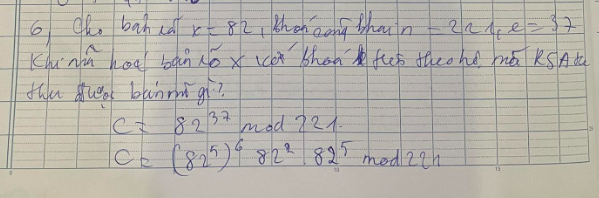 6, Cho bản rõ x = 82, khoá công khai n = 221, e = 37
Khi mã hoá bản rõ x với khoá trên theo hệ mã RSA ta
thu được bản mã gì?
C = 82^37 mod 221.
C = (82^5)^6 82^2 82^5 mod 221